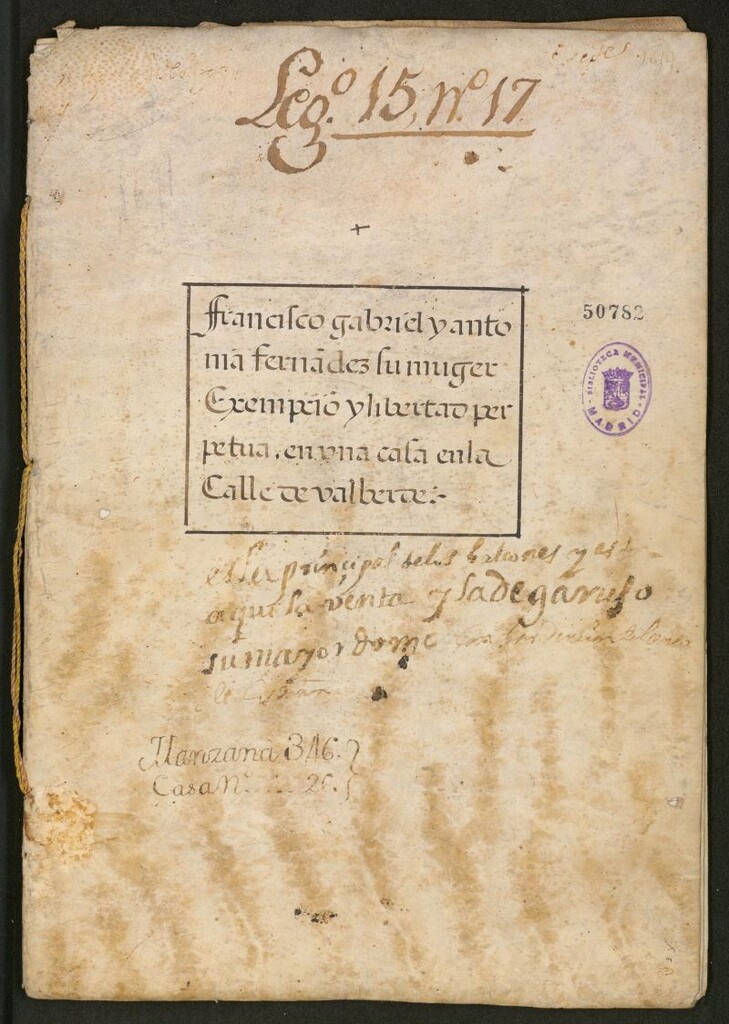 Leg.º 15, Nº 17
+
Francisco gabriel y anto
nia fernãdez su muger
Exempciõ y libertad per
petua, en vna casa enla
Calle de valberde:-
50782
BIBLIOTECA MUNICIPAL
MADRID
es la principal delos balcones y est
aqui la venta y la de garrido
su mayordomo
Manzana 346.
Casa N. 26.